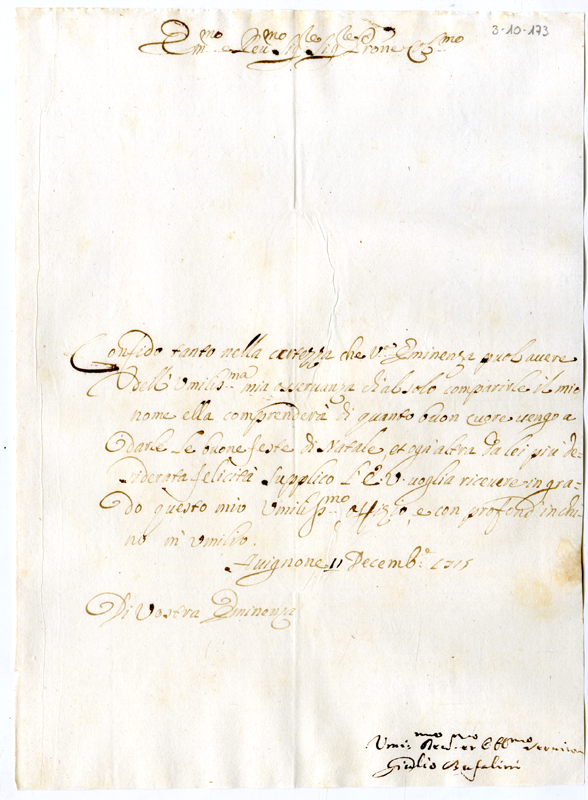 3-10-173
Em.mo e Reu.mo Sig.le Sig.le P̄rone Col.mo
Confido tanto nella certezza che V.a Eminenza può avere
dell'Umilis.ma mia osservanza ch'al solo comparirle il mio
nome ella comprenderà di quanto buon cuore vengo a
darle le buone feste di Natale, et ogn'altra da lei più de-
siderata felicità supplico L'E. V. voglia ricevere in gra-
do questo mio Umiliss.mo offizio, e con profond'inchi-
no m'umilio.
Auignone 11 Decemb.e 1715
Di Vostra Eminenza
Umis.mo Deu.mo et Obb.mo Seruitor
Giulio Bufalini